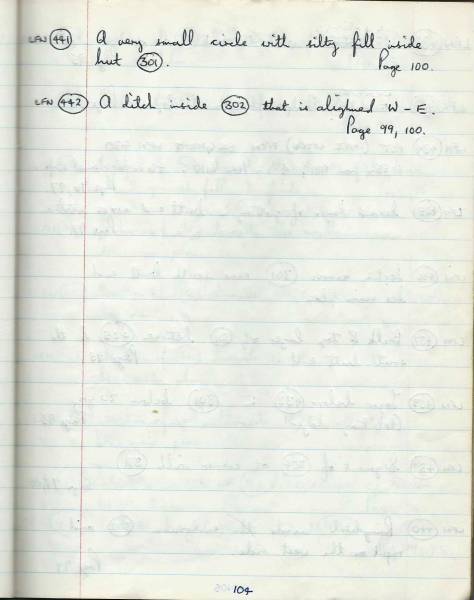 LFN 441 A very small circle with silty fill inside
hut 301.
Page 100.
LFN 442 A ditch inside 302 that is alighned W - E.
Page 99, 100.
104